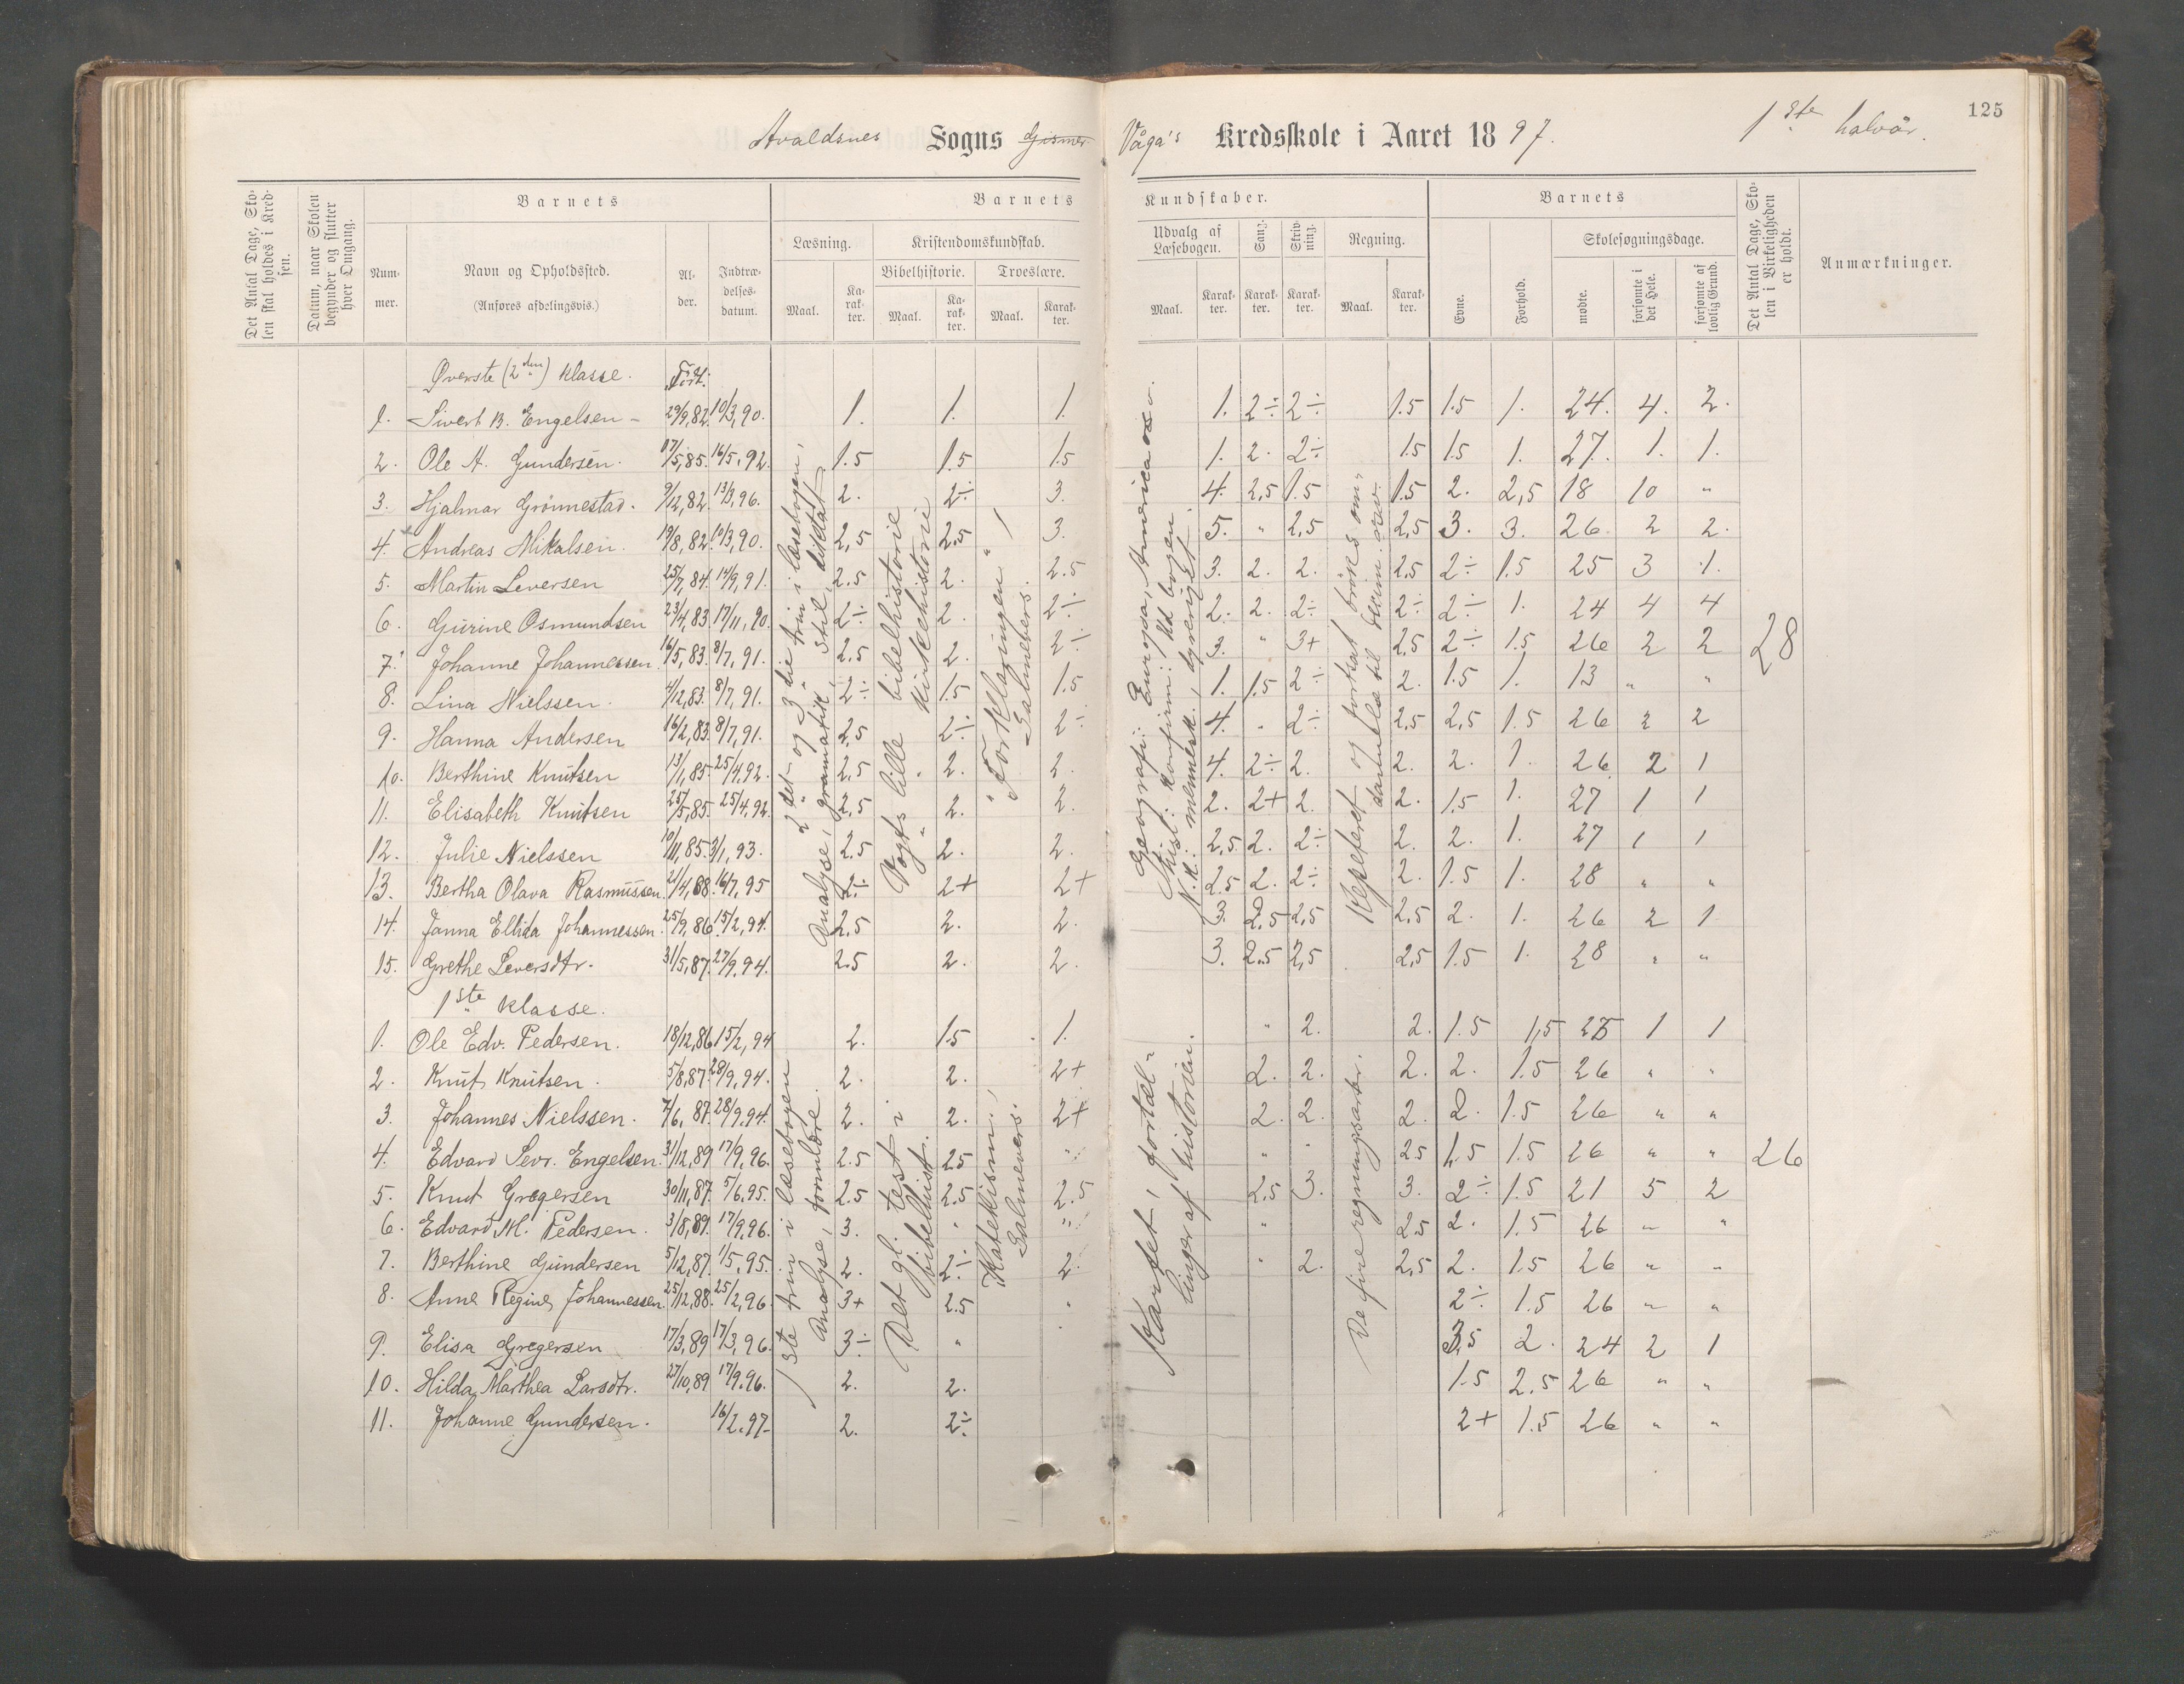 125
Avaldsnes Sogns Gismer Våga's Kredsskole i Aaret 1897. 1ste halvår.
Det Antal Dage, Skolen skal holdes i Kredsen.
Datum, naar Skolen begynder og slutter hver Omgang.
Barnets
Nummer.
Navn og Opholdssted.
(Anføres afdelingsvis.)
Alder.
Indtrædelsesdatum.
Barnets Kundskaber.
Læsning.
Maal.
Karakter.
Kristendomskundskab.
Bibelhistorie.
Maal.
Karakter.
Troeslære.
Maal.
Karakter.
Udvalg af Læsebogen.
Maal.
Karakter.
Sang.
Karakter.
Skrivning.
Karakter.
Regning.
Maal.
Karakter.
Barnets
Evne.
Forhold.
Skolesøgningsdage.
mødte.
forsømte i det Hele.
forsømte af lovlig Grund.
Det Antal Dage, Skolen i Virkeligheden er holdt.
Anmærkninger.
Øverste (2den) klasse. Født.
1. Sivert B. Engelsen 29/9,82. 10/3,90. 1. 1. 1. 1. 2÷ 2÷ 1.5 1.5 1. 24. 4. 2.
2. Ole A. Gundersen. 17/5,85. 16/5,92. 1.5 1.5 1.5 1. 2. 2÷ 1.5 1.5 1. 27. 1. 1.
3. Hjalmar Grönnestad. 9/12,82. 13/3,96. 2. 2÷ 3. 4. 2,5 1.5 1.5 2. 2,5 18 10 "
4. Andreas Mikalsen. 19/8,82. 10/3,90. 2,5 2.5 3. 5. " 2,5 2,5 3. 3. 26. 2 2.
5. Martin Leversen 25/7,84. 14/9,91. 2.5 2. 2.5 3. 2. 2. 2,5 2÷ 1.5 25 3 1.
6. Gurine Osmundsen 23/4,83 17/11,90. 2÷ 2. 2÷ 2. 2. 2÷ 2÷ 2÷ 1. 24 4 4
7. Johanne Johannessen. 16/5,83. 8/7,91. 2.5 2. 2÷ 3. " 3+ 2,5 2÷ 1.5 26 2 2
28
8. Lina Nielssen. 4/12,83. 8/7,91. 2÷ 1.5 1.5 1. 1.5 2÷ 2. 1.5 1. 13 " "
9. Hanna Andersen 16/2,83. 8/7,91. 2,5 2÷ 2÷ 4. " 2÷ 2,5 2,5 1.5 26 2 2
10. Berthine Knutsen 13/1,85. 25/4,92. 2,5 2. 2. 4. 2÷ 2. 2. 2. 1. 26 2 1
11. Elisabeth Knutsen 25/5,85. 25/4,92. 2,5 2. 2. 2. 2+ 2. 2. 1.5 1. 27 1 1
12. Julie Nielssen 10/11,85. 3/1,93. 2.5 2. 2. 2,5. 2. 2÷ 2. 2. 1. 27 1 1
13. Bertha Olava Rasmussen. 21/4,88. 16/7,95 2÷ 2+ 2+ 2.5 2. 2÷ 2. 1.5 1. 28 " "
14. Janna Ellida Johannessen. 25/9,86. 15/2,94. 2,5 2. 2. 3. 2,5 2,5 2,5 2. 1. 26 2 1
15. Grethe Leversdtr. 31/5,87. 27/9,94. 2.5 2. 2. 3. 2.5 2,5 2,5 1.5 1. 28 " "
2det og 3die trin i læsebogen,
Analyse, gramatik, stil, diktat
Vogts lille bibelhistorie
" " kirkehistorie
"Forklaringen"
Salmevers.
Geografi: Europa, America o.s.o.
Hist.: Konfirm: Kd bogen.
N.k: mennesk., dyreriget.
Repeteret og fortsat bröks om-
dannelse til decim. vice.
1ste klasse.
1. Ole Edv. Pedersen. 18/12,86 15/2,94 2. 1.5 1. " 2. 2. 1.5 1,5 25 1 1
2. Knut Knutsen. 5/8,87. 28/9,94. 2. 2. 2+ 2. 2. 2. 2. 1.5 26 " "
3. Johannes Nielssen. 7/6,87. 28/9.94. 2. 2. 2+ 2. 2. 2. 2. 1.5 26 " "
4. Edvard Sevr. Engelsen. 31/12,89 17/9,96. 2.5 25 " " " 25 1.5 1.5 26 " " 26
5. Knut Gregersen 30/11,87. 5/6.95. 2.5 2.5 2.5 2,5 3. 3. 2÷ 1.5 21 5 2
6. Edvard M. Pedersen. 3/8,89. 17/9.96. 3. " " " 25 2. 1.5 26 " "
7. Berthine Gundersen 5/12,87. 1/5,95. 2. 2÷ 2. " 2. 2,5 2. 1.5 26 " "
8. Anne Regine Johannessen. 25/12,88. 25/2,96. 3+ 2.5 " 2÷ 1.5 26 " "
9. Elisa Gregersen 17/3,89 17/3,96. 3÷ " 3,5 2. 24 2 1
10. Hilda Marthea Larsdtr. 27/10,89 17/9.96. 2. 2. 1.5 2.5 26 " "
11. Johanne Gundersen. 16/2.97. 2. 2÷ 2+ 1.5 26 " "
1ste trin i læsebogen
Analyse, formlære
Det gl. test i
bibelhist.
Katekism.,
Salmevers.
Kartet, fortæl-
linger af historien.
De fire regningsarter.